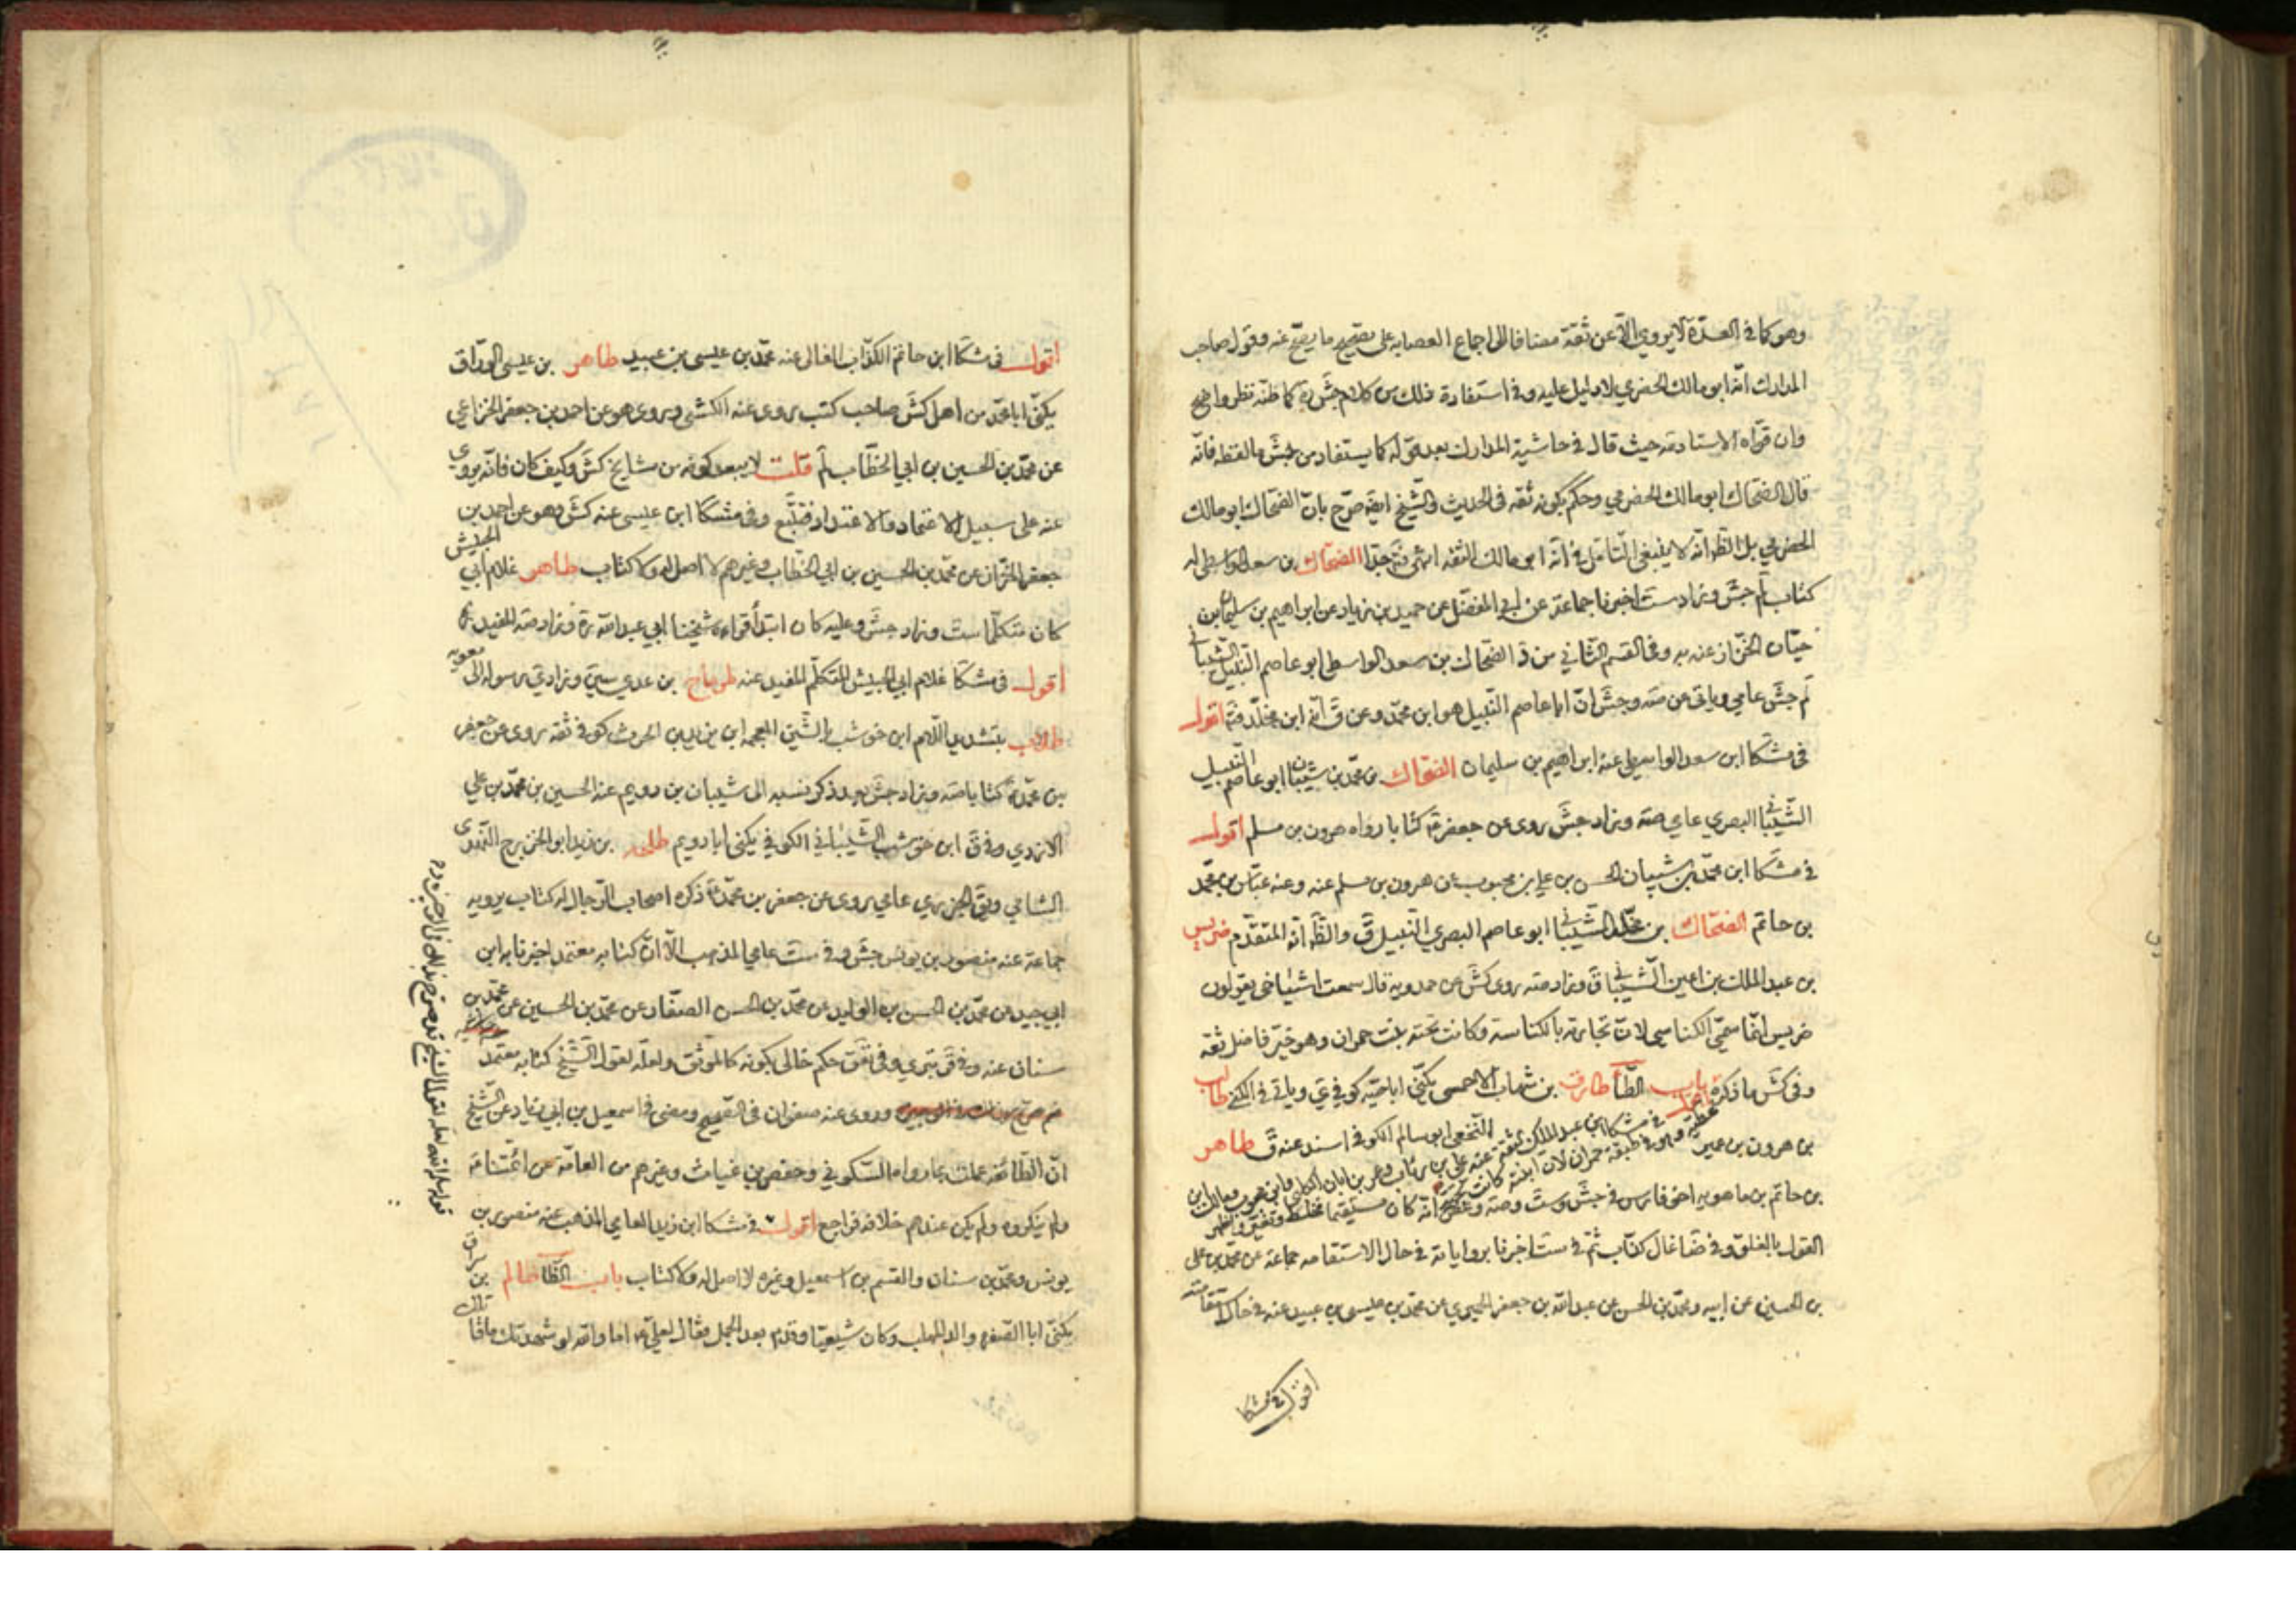 وهو كما في العدّة لا يروي الّا عن ثقة مضافا الى اجماع العصابه على تصحيح ما يصحّ عنه وقول صاحب
المدارك انّه ابو مالك الحضرمي لا دليل عليه وفي استفادة ذلك من كلام جش ره كما ظنّه نظر واضح
وان قوّاه الاستاد مه حيث قال في حاشية المدارك بعد قوله كما يستفاد من جش ما لفظه فانّه
قال الضحّاك ابو مالك الحضرمي وحكم بكونه ثقه في الحديث والشّيخ ايضا صرّح بانّ الضحّاك ابو مالك
الحضرمي بل الظ انّه لا ينبغي التامّل في انّه ابو مالك الثقه انتهى فتا جدّا الضحّاك بن سعد الواسطي له
كتاب لم جش وزاد ست اخبرنا جماعة عن ابي المفضّل عن حميد بن زياد عن ابراهيم بن سليمان بن
حيّان الخزّاز عنه به وفي القسم الثّاني من د الضحّاك بن سعد الواسطي ابو عاصم النّبيل الشّيباني
لم جش عامي وياتي عن صه وجش انّ ابا عاصم النّبيل هو ابن محمّد وعن ق انّه ابن مخلّد فتا اقول
في مشكا ابن سعد الواسطي عنه ابراهيم بن سليمان الضحّاك بن محمّد بن شيبان ابو عاصم النّبيل
الشّيباني البصري عامي صه وزاد جش روى عن جعفر ع كتابا رواه هرون بن مسلم اقول
في مشكا ابن محمّد بن شيبان الحسن بن علي بن محبوب عن هرون بن مسلم عنه وعنه عبّاس بن محمّد
بن حاتم الضحّاك بن مخلّد الشّيباني ابو عاصم البصري النّبيل ق والظ انّه المتقدّم ضريس
بن عبد الملك بن اعين الشّيباني ق وزاد صه روى كش عن حمدويه قال سمعت اشياخي يقولون
ضريس انّما سمّي الكناسي لانّ تجارته بالكناسة وكانت تحته بنت حمران وهو خيّر فاضل ثقه
وفي كش ما ذكره باب الطّا طارق بن شهاب الاحمسي يكنّى ابا حيّه كوفي ي وياتي في الكنى طالب
في مشكا ابن عبد الملك الثقة عنه علي بن رئاب
بن هرون بن عمير النّخعي ابو سالم الكوفي اسند عنه ق طاهر
بن حاتم بن ماهويه اخو فارس في جش وست وصه وغض انّه كان مستقيما فخلط وتغيّر واظهر
القول بالغلو وفي ضا غال كذّاب ثمّ في ست اخبرنا برواياته في حال الاستقامه جماعة عن محمّد بن علي
بن الحسين عن ابيه ومحمّد بن الحسن عن عبد الله بن جعفر الحميري عن محمّد بن عيسى بن عبيد عنه في حال استقامته
اقول في مشكا
اقول في مشكا ابن حاتم الكذّاب الغالي عنه محمّد بن عيسى بن عبيد طاهر بن عيسى الورّاق
يكنّى ابا محمّد من اهل كش صاحب كتب روى عنه الكشي وروى هو عن احمد بن جعفر الخزاعي
عن محمّد بن الحسين بن ابي الخطّاب لم قلت لا يبعد كونه من مشايخ كش وكيف كان فانّه يروي
عنه على سبيل الاعتماد والاعتداد فتتبّع وفي مشكا ابن عيسى عنه كش وهو عن احمد بن
جعفر الخزّاز عن محمّد بن الحسين بن ابي الخطّاب وغيرهم لا اصل له ولا كتاب طاهر غلام ابي الجيش
كان متكلّما ست وزاد جش وعليه كان ابتدأ قراءة شيخنا ابي عبد الله ره وزاد صه المفيد
اقول في مشكا غلام ابي الجيش المتكلّم المفيد عنه طرماح بن عدي سين وزاد ي رسوله الى معويه
طلاب بتشديد اللّام ابن حوشب بالشّين المعجمه ابن يزيد بن الحرث كوفي ثقه روى عن جعفر
بن محمّد ع كتابا صه وزاد جش بعد ذكر نسبه الى شيبان بن رويم عنه الحسين بن محمّد بن علي
الازدي وفي ق ابن حوشب الشّيباني الكوفي يكنى ابا رويم طلحه بن زيد ابو الخزرج النّهدي
الشامي ويق الجزري عامي روى عن جعفر بن محمّد ع ذكره اصحاب الرّجال له كتاب يرويه
جماعة عنه منصور بن يونس جش وفي ست عامي المذهب الّا انّ كتابه معتمد اخبرنا به ابن
ابي جيد عن محمّد بن الحسن بن الوليد عن محمّد بن الحسن الصفّار عن محمّد بن الحسين عن محمّد بن
سنان عنه وفي ق بتري وفي تعق حكم خالي بكونه كالموثّق ولعلّه لقول الشّيخ كتابه معتمد
وروى عنه صفوان في الصّحيح ومضى في اسمعيل بن ابي زياد عن الشّيخ
انّ الطّائفه عملت بما رواه السّكوني وحفص بن غياث وغيرهم من العامّه عن ائمّتنا ع
ولم ينكروه ولم يكن عندهم خلافه فراجع اقول في مشكا ابن زيد العامي المذهب عنه منصور بن
يونس ومحمّد بن سنان والقسم بن اسمعيل وغيره لا اصل له ولا كتاب باب الظّا ظالم بن سراق
يكنّى ابا الصّفره والد المهلب وكان شيعيّا وقدم بعد الجمل فقال لعليّ ع اما والله لو شهدتك ما قاتلك